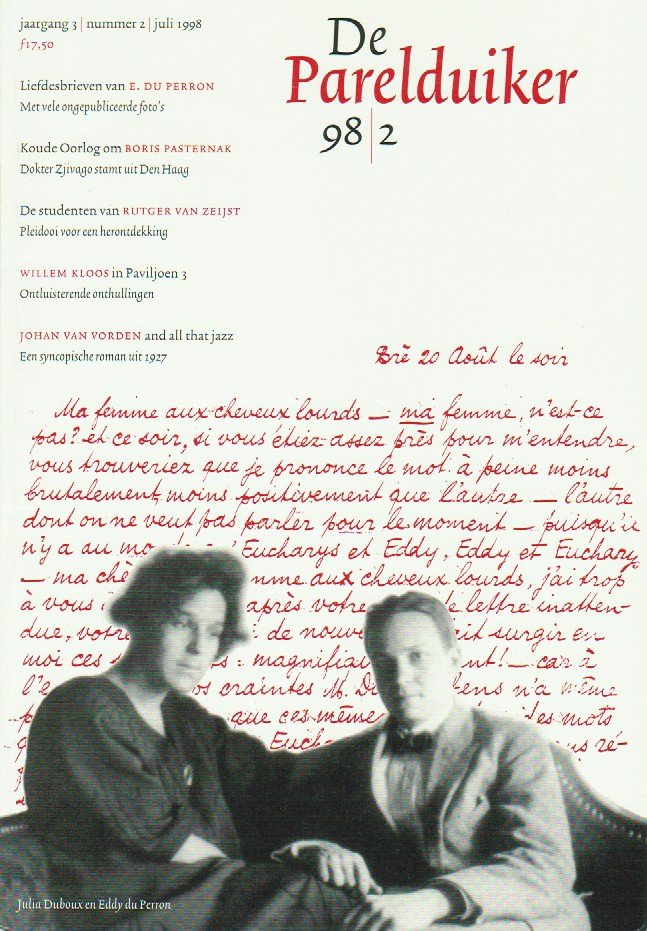 jaargang 3 | nummer 2 | juli 1998
ƒ17,50
De
Parelduiker
98|2
Liefdesbrieven van E. DU PERRON
Met vele ongepubliceerde foto's
Koude Oorlog om BORIS PASTERNAK
Dokter Zjivago stamt uit Den Haag
De studenten van RUTGER VAN ZEIJST
Pleidooi voor een herontdekking
WILLEM KLOOS in Paviljoen 3
Ontluisterende onthullingen
JOHAN VAN VORDEN and all that jazz
Een syncopische roman uit 1927
Brè 20 Août le soir
Ma femme aux cheveux lourds — ma femme, n'est-ce
pas? et ce soir, si vous étiez assez près pour m'entendre,
vous trouveriez que je prononce le mot à peine moins
brutalement, moins positivement que l'autre — l'autre
dont on ne veut pas parler pour le moment — puisqu'il
n'y a au mo Eucharys et Eddy, Eddy et Euchary
— ma chè mme aux cheveux lourds, j'ai trop
à vous après votre lettre inatten-
due, votre de nouve ait surgir en
moi ces : magnifiai nt! — car à
l'e os craintes M. D ens n'a même
que ces même les mots
Euch us ré-
Julia Duboux en Eddy du Perron